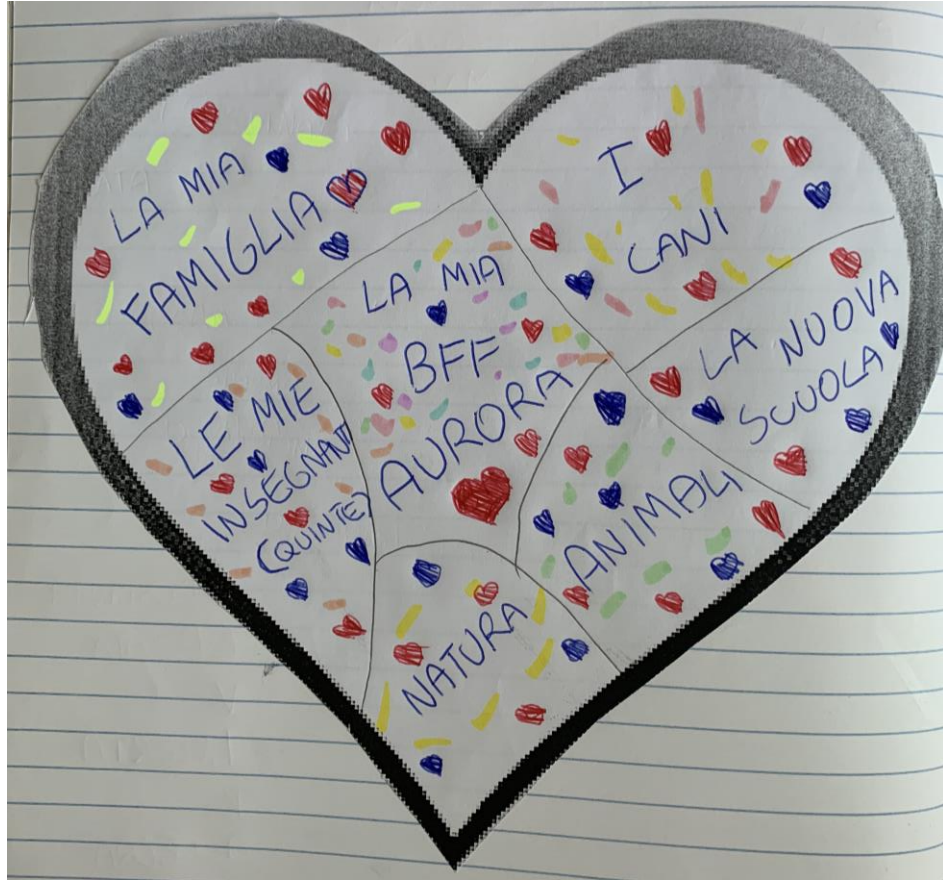 LA MIA
FAMIGLIA
I
CANI
LA MIA
BFF
AURORA
LA NUOVA
SCUOLA
LE MIE
INSEGNANTI
(QUINTE)
ANIMALI
NATURA